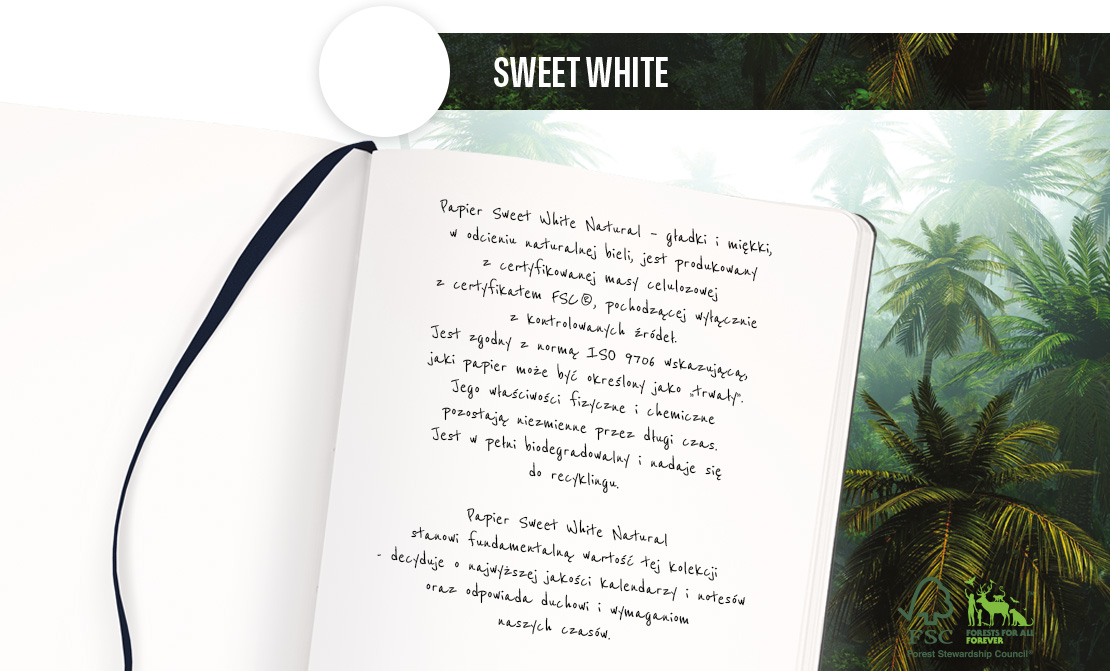 SWEET WHITE
Papier Sweet White Natural - gładki i miękki,
w odcieniu naturalnej bieli, jest produkowany
z certyfikowanej masy celulozowej
z certyfikatem FSC®, pochodzącej wyłącznie
z kontrolowanych źródeł.
Jest zgodny z normą ISO 9706 wskazującą,
jaki papier może być określony jako „trwały".
Jego właściwości fizyczne i chemiczne
pozostają niezmienne przez długi czas.
Jest w pełni biodegradowalny i nadaje się
do recyklingu.
Papier Sweet White Natural
stanowi fundamentalną wartość tej kolekcji
- decyduje o najwyższej jakości kalendarzy i notesów
oraz odpowiada duchowi i wymaganiom
naszych czasów.
FSC
FORESTS FOR ALL
FOREVER
Forest Stewardship Council®